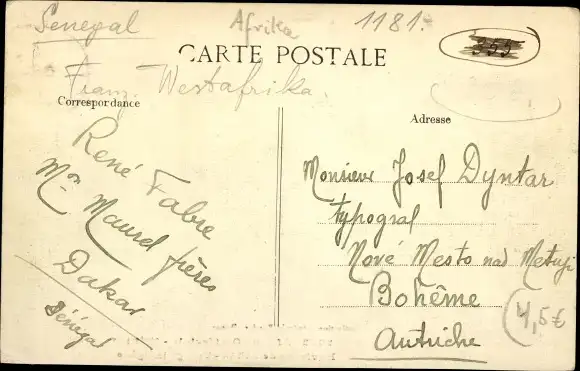 Senegal
Afrika
1181.-
355
CARTE POSTALE
Franz. Westafrika.
Correspordance
Adresse
René Fabre
Mon Maurel frères
Dakar
Sénégal
Monsieur Josef Dyntar
typograf
Nové Mesto nad Metují
Bohême
Autriche
4,5€